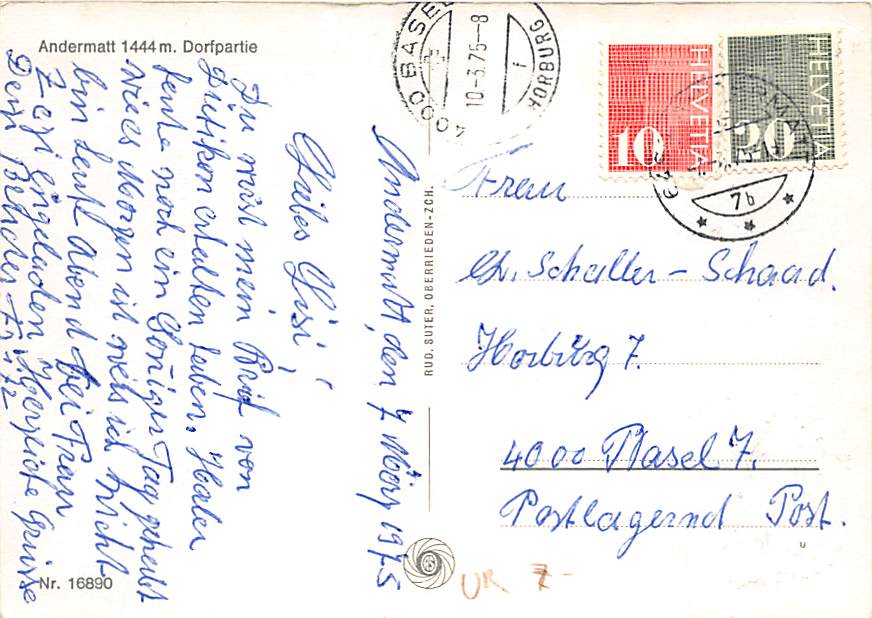 Andermatt 1444 m. Dorfpartie
Andermatt, den 7 März 1975
Liebes Gusi,
Du wirst mein Brif von
erhalten haben,
heute noch ein Soniger Tag gehebt
wies Morgen ist weis ich nicht
bin heute Abend bei Frau
Zezi eingeladen Herzliche Grüsse
Dein Bruder Fritz
Nr. 16890
RUD. SUTER, OBERRIEDEN-ZCH.
4000 BASEL
10-3.75-8
1
HORBURG
10
HELVETIA
20
HELVETIA
7b
Frau
Ch. Schaller - Schaad.
Horburg 7.
4000 Basel 7.
Postlagernd Post.
u
UR 7-